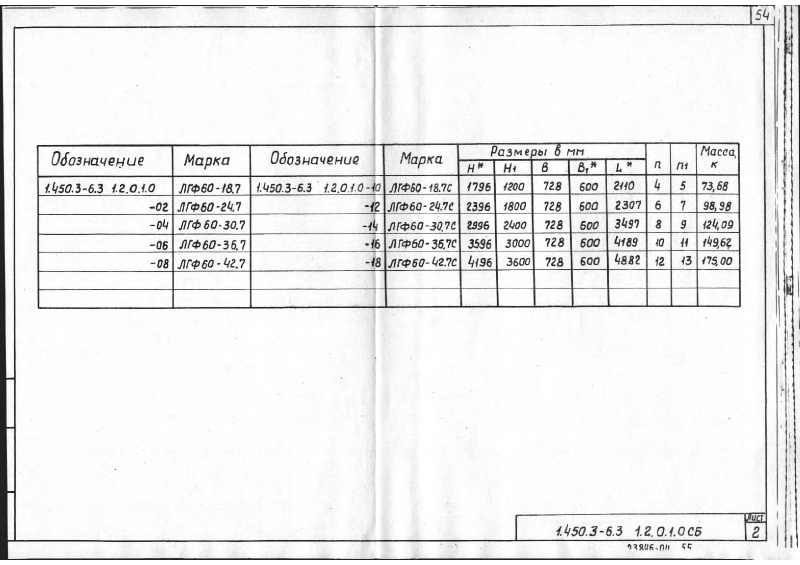 54
Обозначение Марка Обозначение Марка Размеры в мм n n1 Масса, к
H* H1 B B1* L*
1.450.3-6.3 1.2.0.1.0 ЛГФ60-18.7 1.450.3-6.3 1.2.0.1.0-10 ЛГФ60-18.7С 1796 1200 728 600 2110 4 5 73,68
-02 ЛГФ60-24.7 -12 ЛГФ60-24.7С 2396 1800 728 600 2307 6 7 98,98
-04 ЛГФ60-30.7 -14 ЛГФ60-30.7С 2996 2400 728 600 3497 8 9 124,09
-06 ЛГФ60-36.7 -16 ЛГФ60-36.7С 3596 3000 728 600 4189 10 11 149,62
-08 ЛГФ60-42.7 -18 ЛГФ60-42.7С 4196 3600 728 600 4882 12 13 175,00
1.450.3-6.3 1.2.0.1.0СБ Лист
2
55